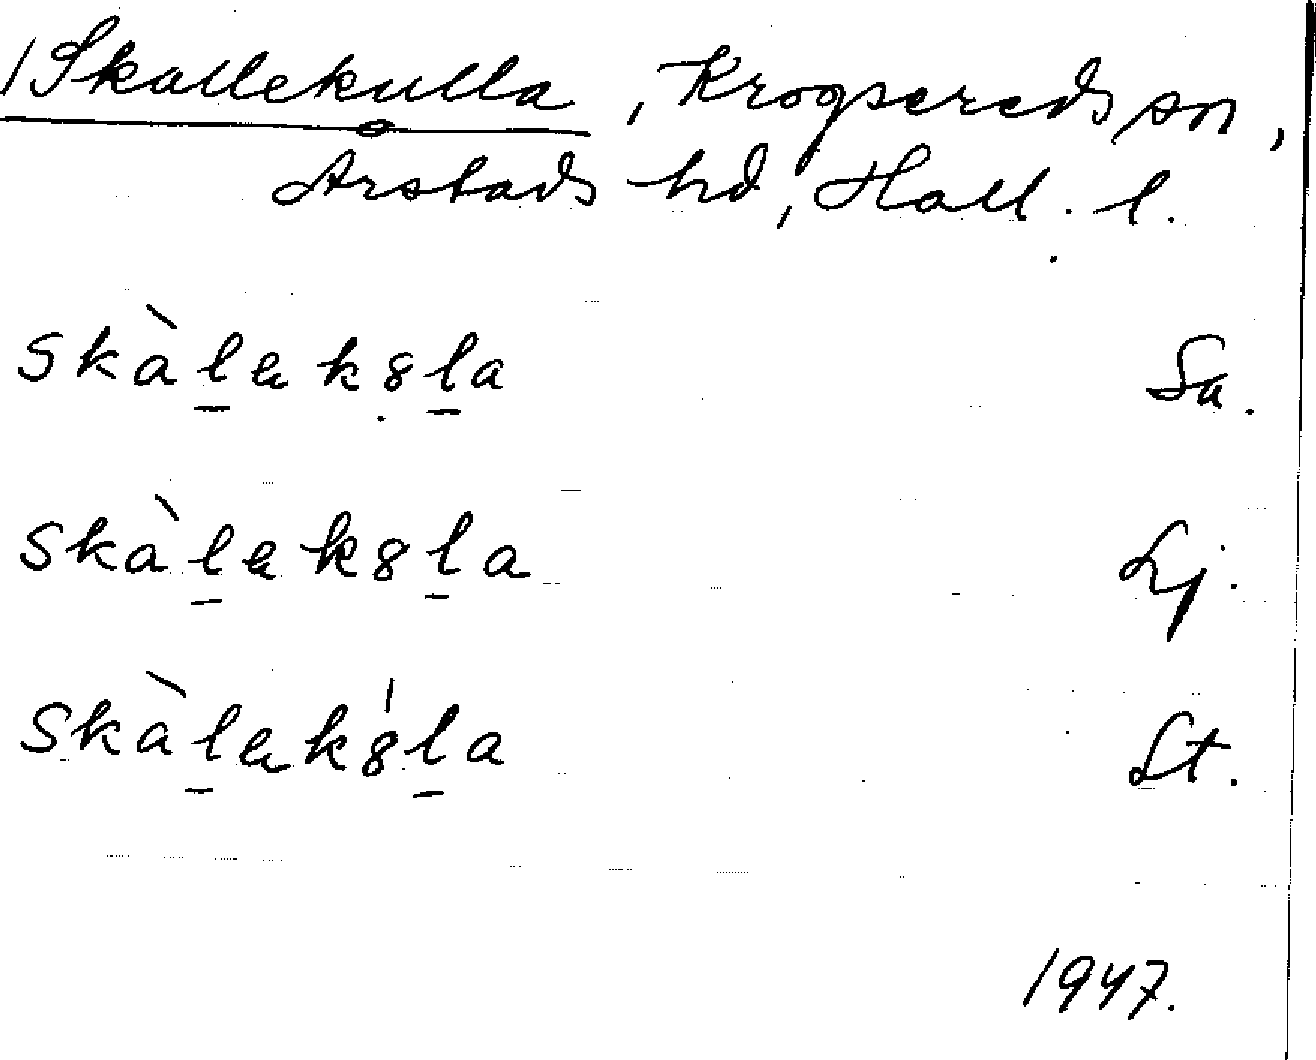 /Skallekulla, Krogsereds sn,
Årstads hd, Hall. l.
skàlak8la Sa.
skàlak8la Lj.
skàlak8́la St.
1947.